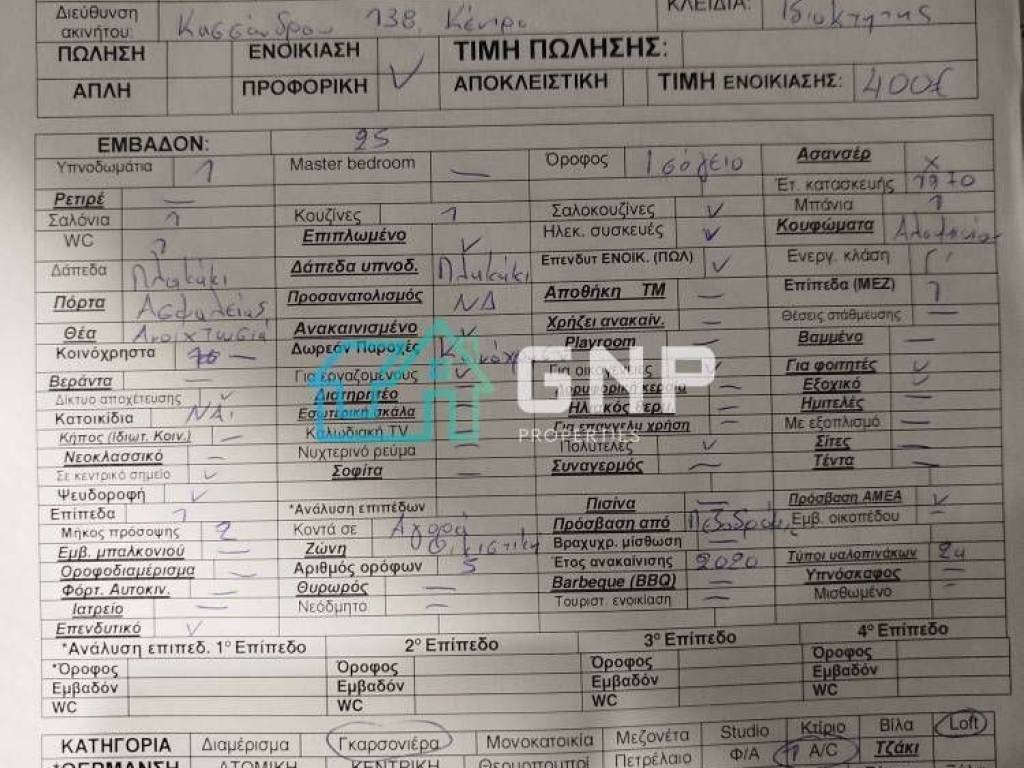 Διεύθυνση ακινήτου: Κασσάνδρου 138, Κέντρο ΚΛΕΙΔΙΑ: Ιδιοκτήτης
ΠΩΛΗΣΗ ΕΝΟΙΚΙΑΣΗ ΤΙΜΗ ΠΩΛΗΣΗΣ:
ΑΠΛΗ ΠΡΟΦΟΡΙΚΗ ✓ ΑΠΟΚΛΕΙΣΤΙΚΗ ΤΙΜΗ ΕΝΟΙΚΙΑΣΗΣ: 400€
ΕΜΒΑΔΟΝ: 25
Υπνοδωμάτια 1 Master bedroom — Όροφος Ισόγειο Ασανσέρ x
Ρετιρέ — Έτ. κατασκευής 1970
Σαλόνια 1 Κουζίνες 1 Σαλοκουζίνες ✓ Μπάνια 1
WC 1 Επιπλωμένο ✓ Ηλεκ. συσκευές ✓ Κουφώματα
Δάπεδα Πλακάκι Δάπεδα υπνοδ. Πλακάκι Επενδυτ ΕΝΟΙΚ. (ΠΩΛ) ✓ Ενεργ. κλάση
Πόρτα Ασφαλείας Προσανατολισμός ΝΔ Αποθήκη ΤΜ — Επίπεδα (ΜΕΖ) 1
Θέα Ανακαινισμένο ✓ Χρήζει ανακαίν. — Θέσεις στάθμευσης —
Κοινόχρηστα — Δωρεάν Παροχές Playroom — Βαμμένο —
Βεράντα — Για εργαζομένους ✓ Για οικογένειες ✓ Για φοιτητές ✓
Δίκτυο αποχέτευσης ✓ Διατηρητέο — Δορυφορική κεραία — Εξοχικό ✓
Κατοικίδια ΝΑΙ Εσωτερική σκάλα — Ηλιακός θερμ. — Ημιτελές —
Κήπος (Ιδιωτ. Κοιν.) — Καλωδιακή TV Για επαγγελμ χρήση — Με εξοπλισμό —
Νεοκλασσικό — Νυχτερινό ρεύμα Πολυτελές ✓ Σίτες —
Σε κεντρικό σημείο ✓ Σοφίτα — Συναγερμός — Τέντα —
Ψευδοροφή ✓
Επίπεδα 1 *Ανάλυση επιπέδων Πισίνα — Πρόσβαση ΑΜΕΑ ✓
Μήκος πρόσοψης 2 Κοντά σε Αγορά Πρόσβαση από Εμβ. οικοπέδου —
Εμβ. μπαλκονιού — Ζώνη Οικιστική Βραχυχρ. μίσθωση —
Οροφοδιαμέρισμα — Αριθμός ορόφων 5 Έτος ανακαίνισης 2020 Τύποι υαλοπινάκων
Φόρτ. Αυτοκιν. — Θυρωρός — Barbeque (BBQ) — Υπνόσκαφος —
Ιατρείο — Νεόδμητο — Τουριστ. ενοικίαση — Μισθωμένο —
Επενδυτικό ✓
*Ανάλυση επιπεδ. 1º Επίπεδο 2º Επίπεδο 3º Επίπεδο 4º Επίπεδο
*Όροφος Όροφος Όροφος Όροφος
Εμβαδόν Εμβαδόν Εμβαδόν Εμβαδόν
WC WC WC WC
ΚΑΤΗΓΟΡΙΑ Διαμέρισμα Γκαρσονιέρα Μονοκατοικία Μεζονέτα Studio Κτίριο Βίλα Loft
*ΘΕΡΜΑΝΣΗ ΑΤΟΜΙΚΗ ΚΕΝΤΡΙΚΗ Θερμοπομποί Πετρέλαιο Φ/Α A/C Τζάκι
GNP
PROPERTIES